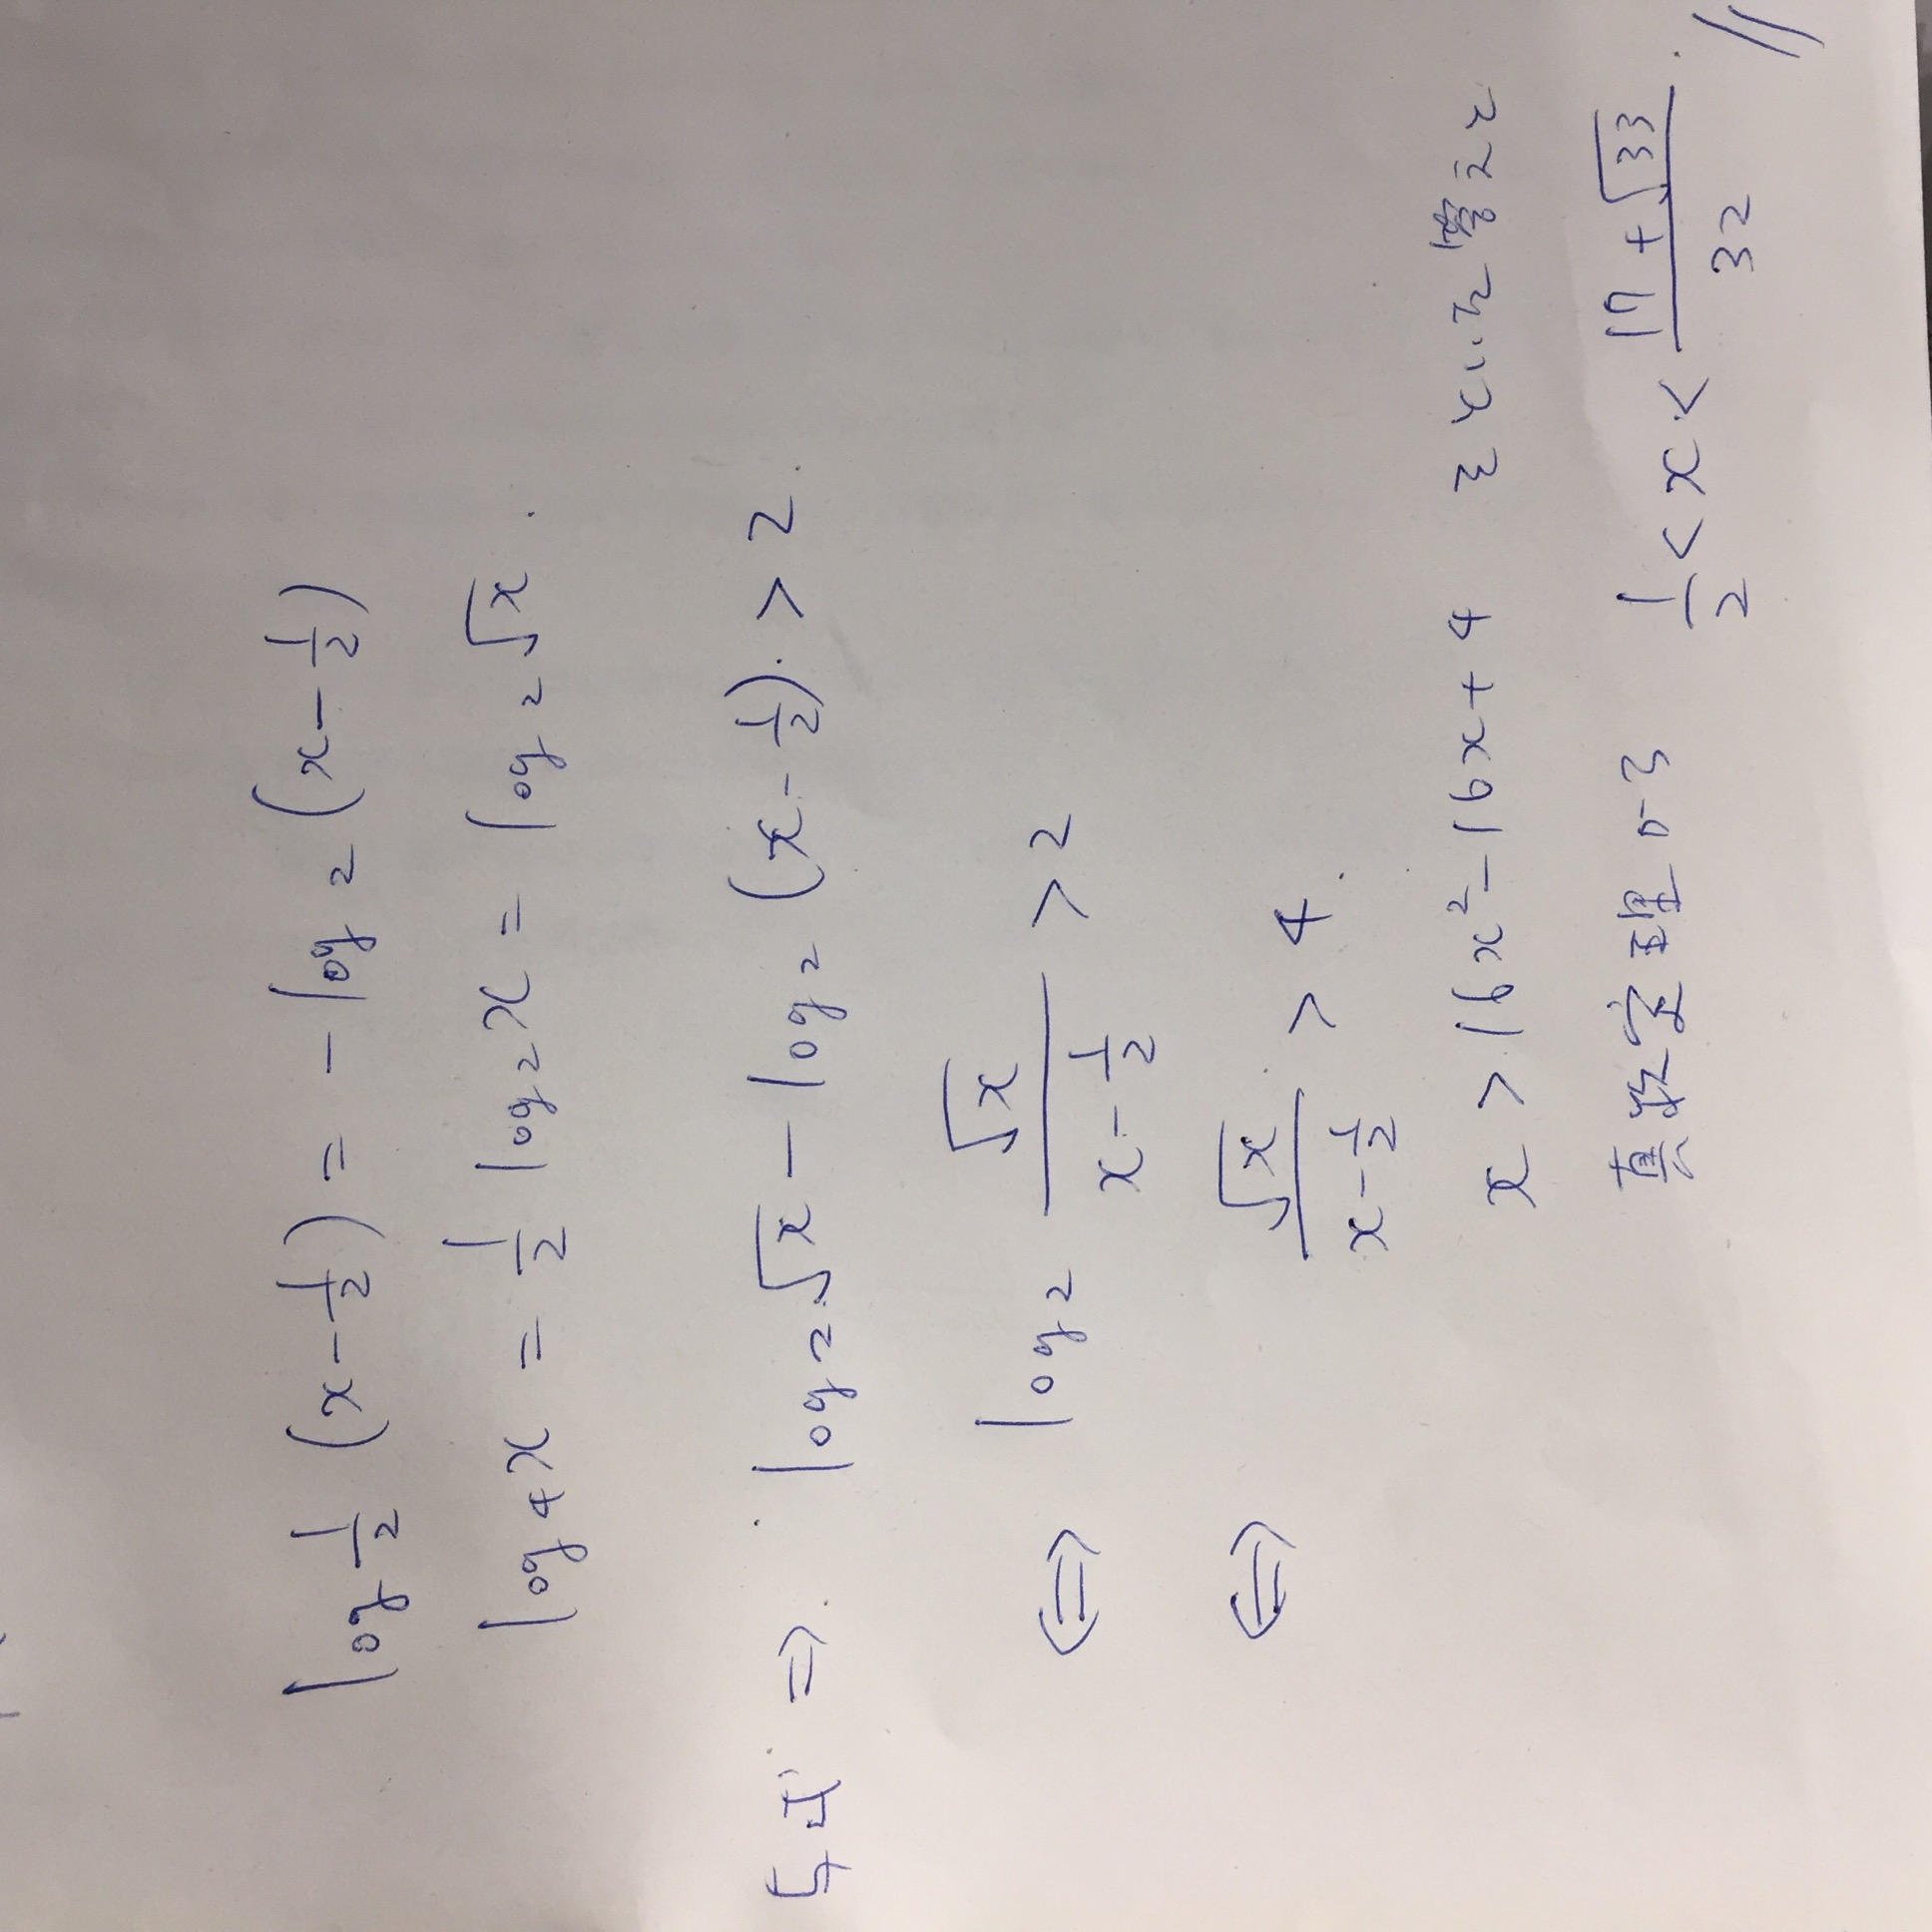 log 1/2 (x - 1/2) = - log 2 (x - 1/2)
log 4 x = 1/2 log 2 x = log 2 √x.
与式 ⇒ log 2 √x - log 2 (x - 1/2) > 2.
⇔ log 2 √x/(x - 1/2) > 2
⇔ √x/(x - 1/2) > 4.
x > 16x² - 16x + 4 をといて整えて
真数定理から 1/2 < x < (17 + √33)/32. //